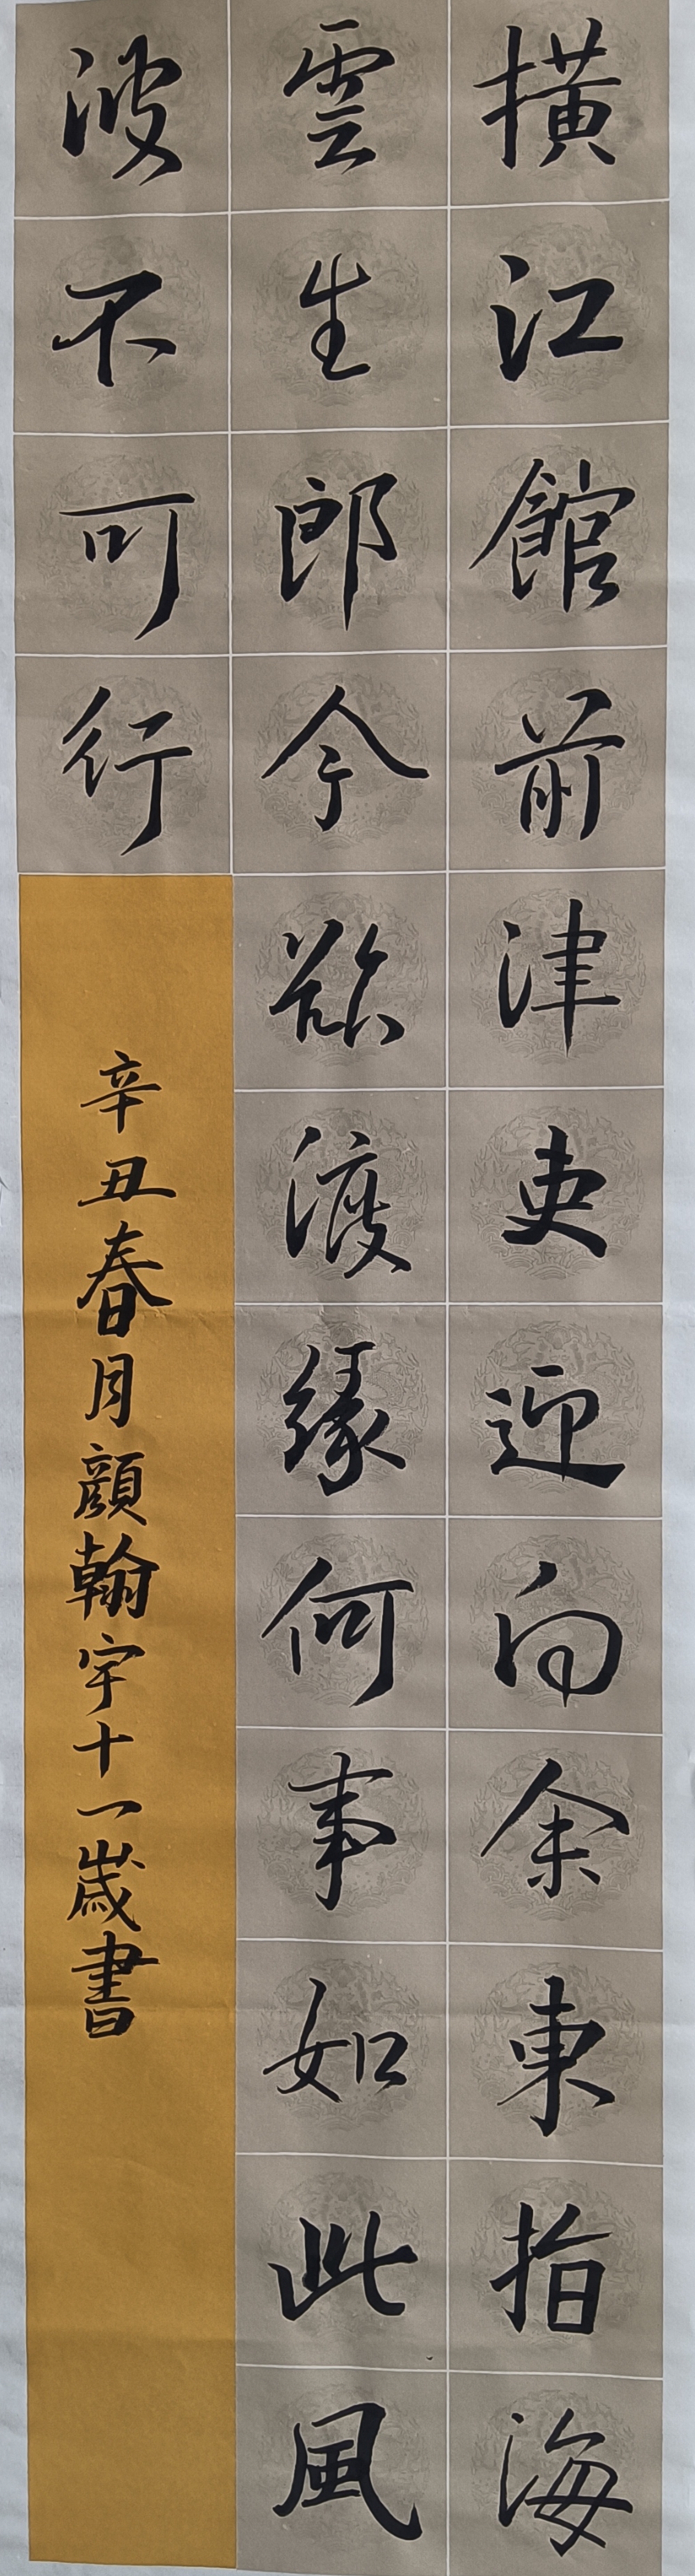 橫江館前津吏迎向余東指海
雲生郎今欲渡緣何事如此風
波不可行
辛丑春月顏翰宇十一歲書